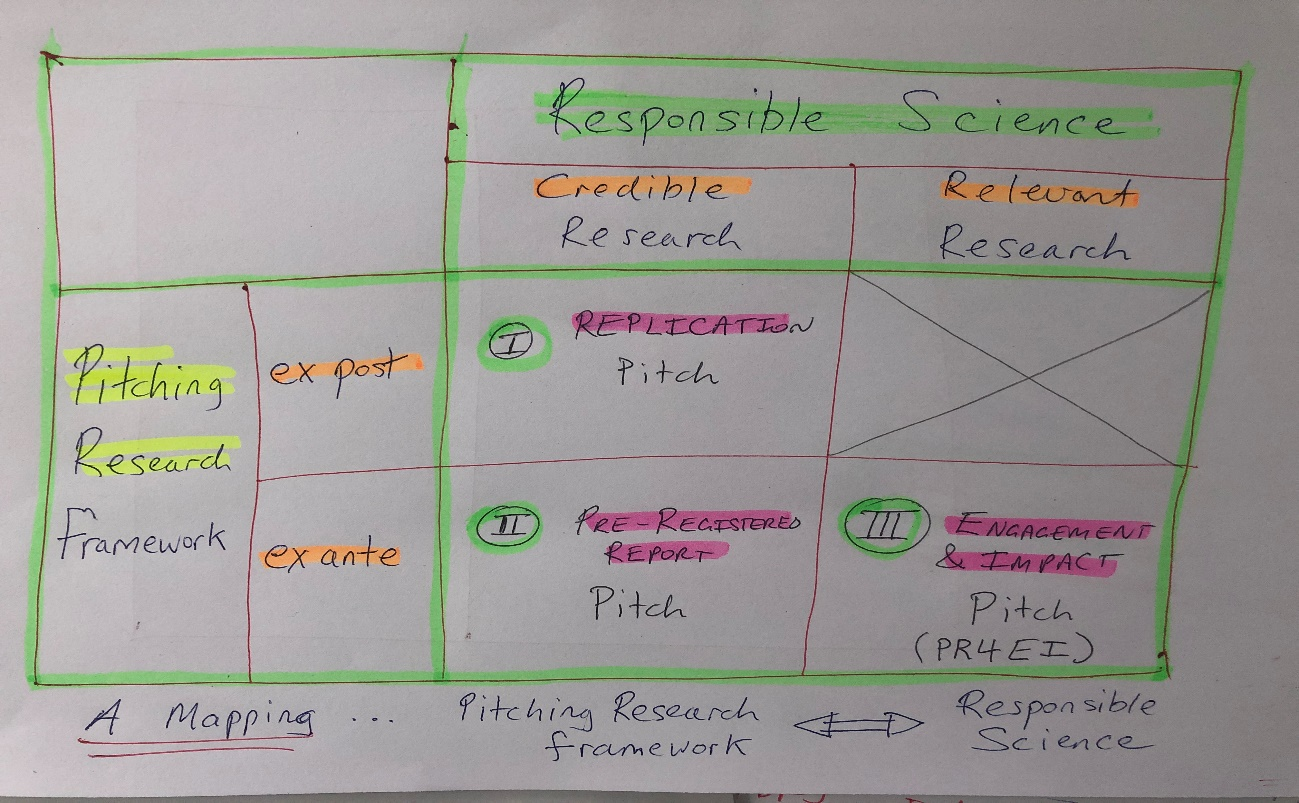 Responsible Science
Credible
Research
Relevant
Research
Pitching
Research
Framework
ex post
I REPLICATION
Pitch
ex ante
II PRE-REGISTERED
REPORT
Pitch
III ENGAGEMENT
& IMPACT
Pitch
(PR4EI)
A Mapping ... Pitching Research
Framework
Responsible
Science